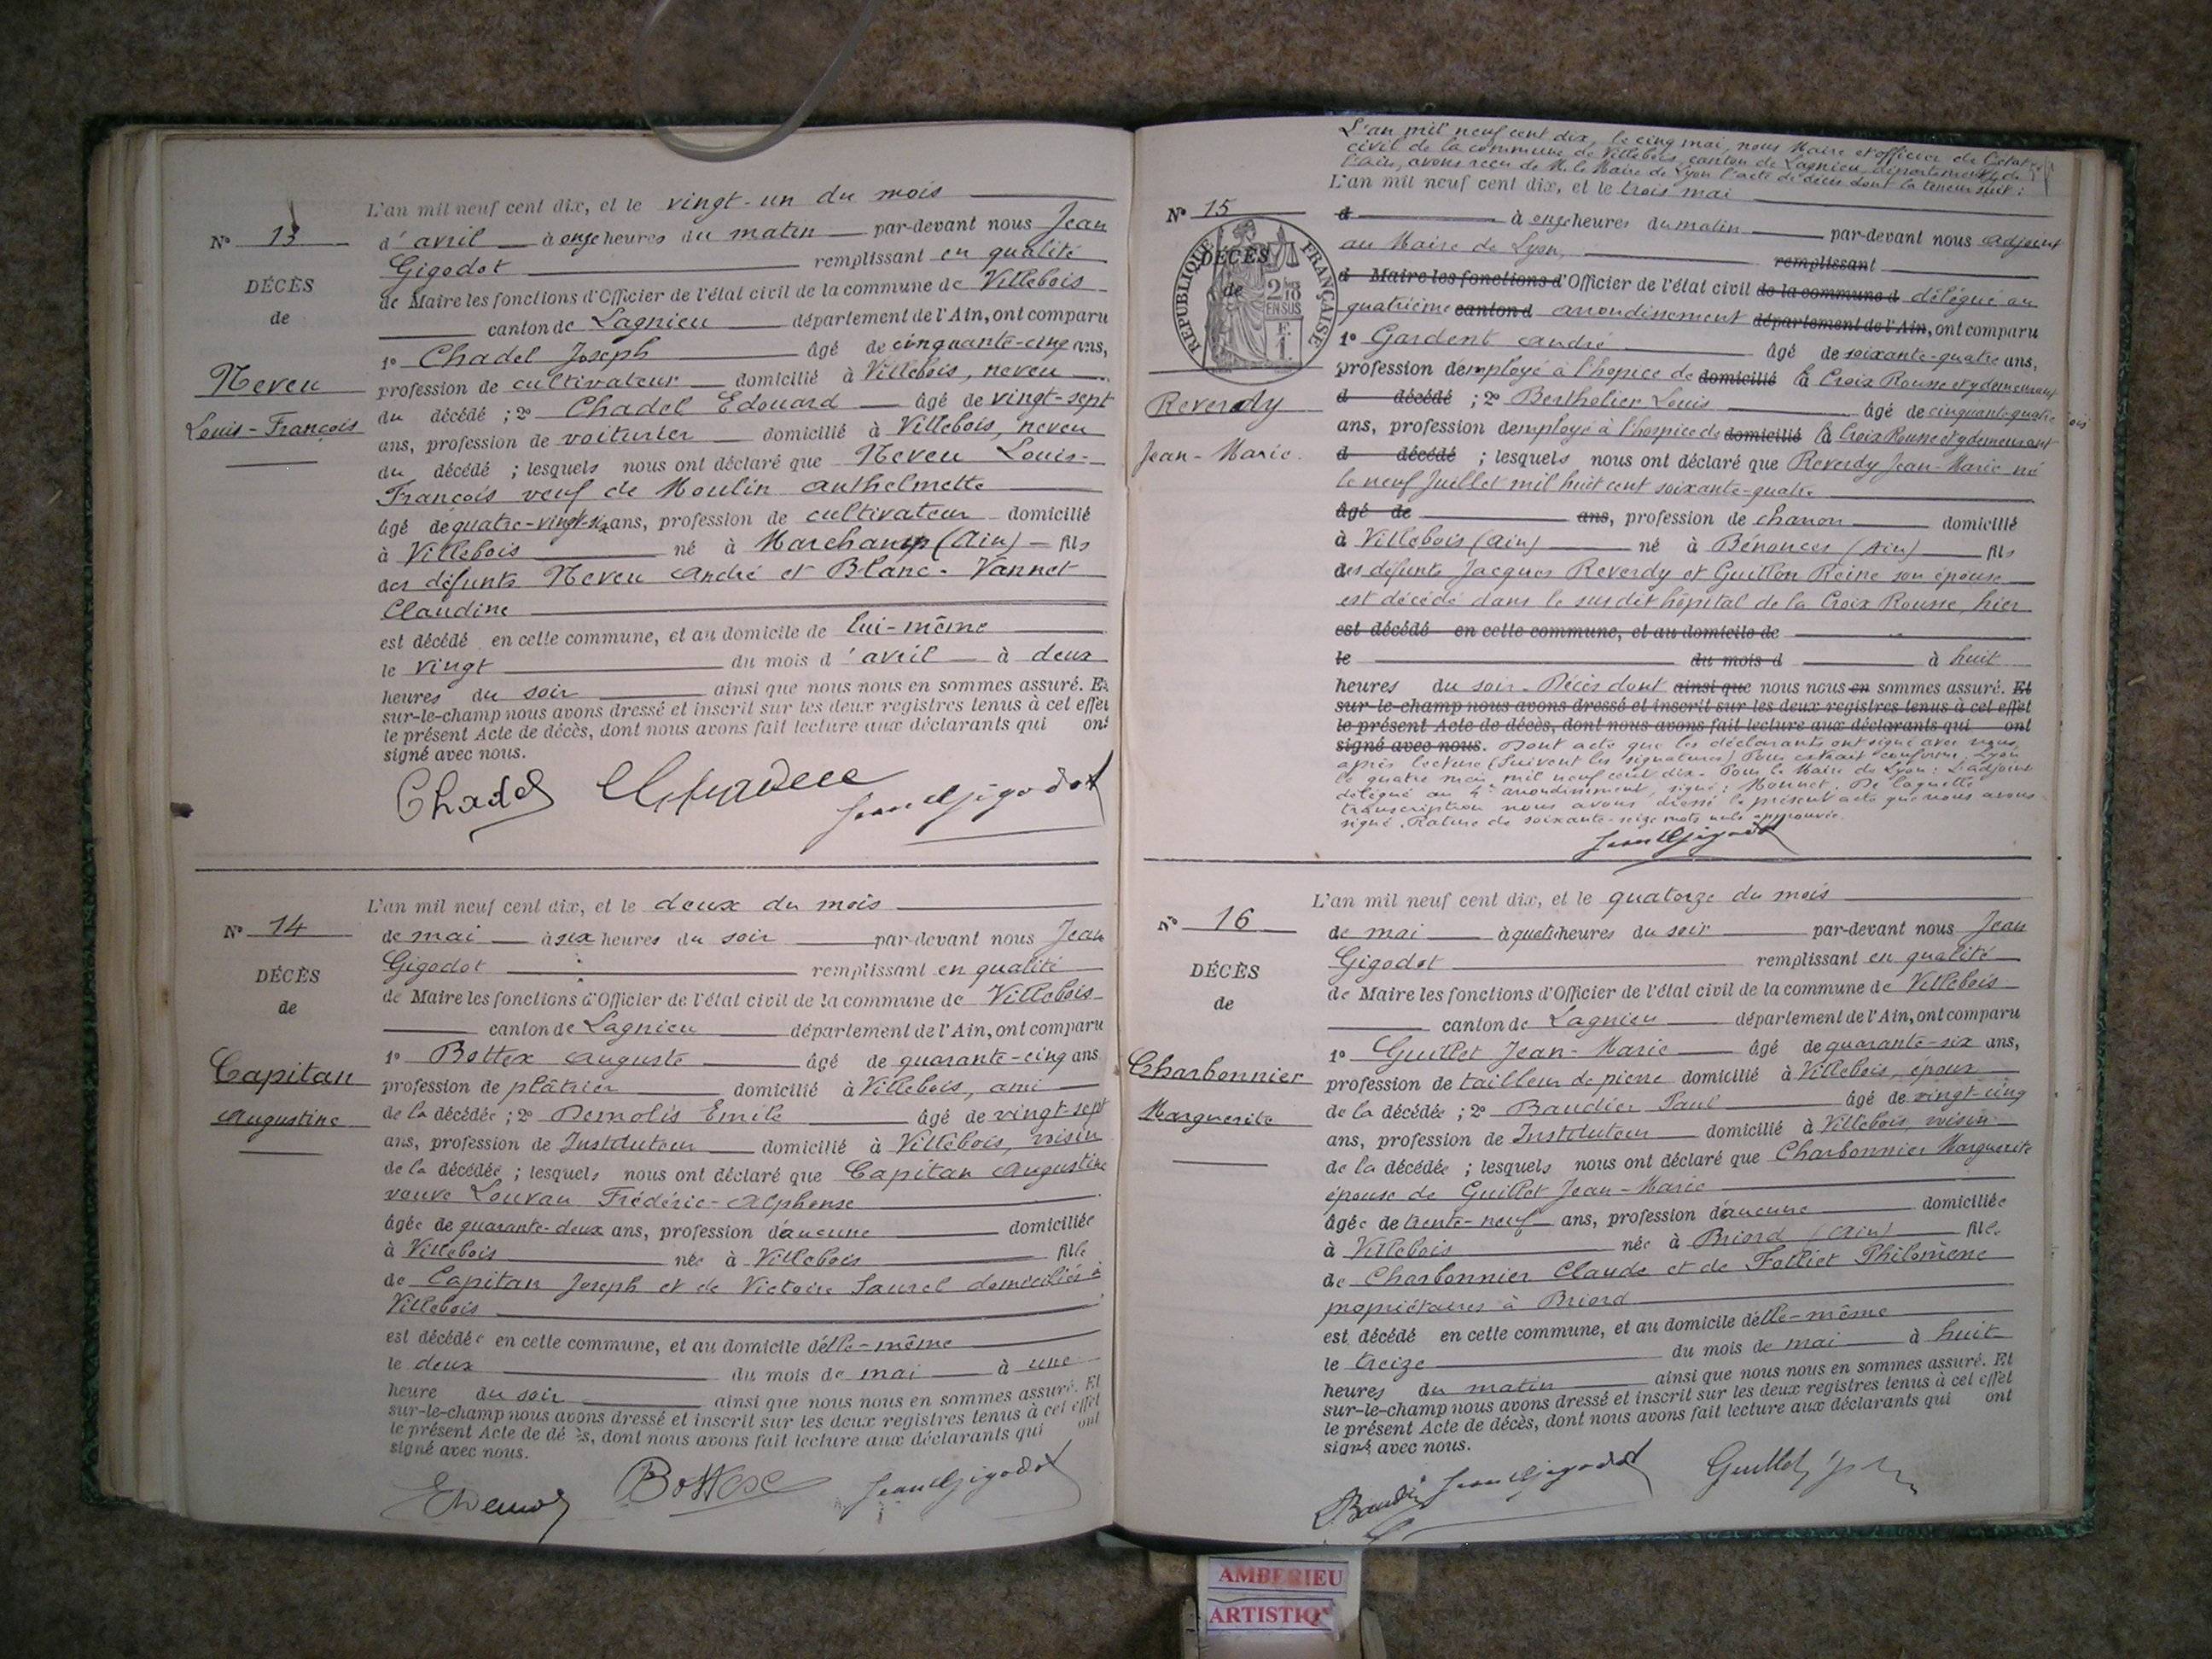 L'an mil neuf cent dix, et le vingt-un du mois
N° 13
d'avril à onze heures du matin par-devant nous Jean
Gigodot remplissant en qualité
DÉCÈS
de Maire les fonctions d'Officier de l'état civil de la commune de Villebois
de
canton de Lagnieu département de l'Ain, ont comparu
1° Chadel Joseph âgé de cinquante-cinq ans,
Neveu
profession de cultivateur domicilié à Villebois, neveu
Louis-François
du décédé ; 2° Chadel Edouard âgé de vingt-sept
ans, profession de voiturier domicilié à Villebois, neveu
du décédé ; lesquels nous ont déclaré que Neveu Louis-
François veuf de Moulin Anthelmette
âgé de quatre-vingt- ans, profession de cultivateur domicilié
à Villebois né à Marchamp (Ain) fils
des défunts Neveu André et Blanc-Vannet
Claudine
est décédé en cette commune, et au domicile de lui-même
le vingt du mois d'avril à deux
heures du soir ainsi que nous nous en sommes assuré. Et
sur-le-champ nous avons dressé et inscrit sur les deux registres tenus à cet effet
le présent Acte de décès, dont nous avons fait lecture aux déclarants qui ont
signé avec nous.
Chadel Jean Gigodot
L'an mil neuf cent dix, et le deux du mois
N° 14
de mai à six heures du soir par-devant nous Jean
Gigodot remplissant en qualité
DÉCÈS
de Maire les fonctions d'Officier de l'état civil de la commune de Villebois
de
canton de Lagnieu département de l'Ain, ont comparu
1° Bottex Auguste âgé de quarante-cinq ans
Capitan
profession de plâtrier domicilié à Villebois, ami
Augustine
de la décédée ; 2° Demolis Emile âgé de vingt-sept
ans, profession de Instituteur domicilié à Villebois, voisin
de la décédée ; lesquels nous ont déclaré que Capitan Augustine
veuve Louvau Frédéric-Alphonse
âgée de quarante-deux ans, profession d'aucune domiciliée
à Villebois née à Villebois fille
de Capitan Joseph et de Victoire Saurel domiciliés à
Villebois
est décédée en cette commune, et au domicile d'elle-même
le deux du mois de mai à une
heure du soir ainsi que nous nous en sommes assuré. Et
sur-le-champ nous avons dressé et inscrit sur les deux registres tenus à cet effet
le présent Acte de décès, dont nous avons fait lecture aux déclarants qui ont
signé avec nous.
EDemolis Bottex Jean Gigodot
L'an mil neuf cent dix, le cinq mai, nous Maire et officier de l'état
civil de la commune de Villebois, canton de Lagnieu, département de
l'Ain, avons reçu de M. le Maire de Lyon l'acte de décès dont la teneur suit :
L'an mil neuf cent dix, et le trois mai
N° 15
d à onze heures du matin par-devant nous adjoint
au Maire de Lyon, remplissant
RÉPUBLIQUE FRANÇAISE
DÉCÈS
de
2/10 EN SUS
F. 1.
d Maire les fonctions d'Officier de l'état civil de la commune d délégué au
quatrième canton d arrondissement département de l'Ain, ont comparu
1° Gardent André âgé de soixante-quatre ans,
profession d'employé à l'hospice de domicilié la Croix Rousse et y demeurant
Reverdy
d décédé ; 2° Berthelier Louis âgé de cinquante-quatre
ans, profession d'employé à l'hospice de domicilié la Croix Rousse et y demeurant
Jean-Marie.
d décédé ; lesquels nous ont déclaré que Reverdy Jean-Marie né
le neuf Juillet mil huit cent soixante-quatre
âgé de ans, profession de charron domicilié
à Villebois (Ain) né à Bénonces (Ain) fils
des défunts Jacques Reverdy et Guillon Reine son épouse
est décédé dans le susdit hôpital de la Croix Rousse, hier
est décédé en cette commune, et au domicile de
le du mois d à huit
heures du soir. Décès dont ainsi que nous nous en sommes assuré. Et
sur-le-champ nous avons dressé et inscrit sur les deux registres tenus à cet effet
le présent Acte de décès, dont nous avons fait lecture aux déclarants qui ont
signé avec nous. Dont acte que les déclarants ont signé avec nous
après lecture (Suivent les signatures) Pour extrait conforme, Lyon
le quatre mai mil neuf cent dix. Pour le Maire de Lyon : L'adjoint
délégué au 4e arrondissement, signé : Monnet. De laquelle
transcription nous avons dressé le présent acte que nous avons
signé. Rature de soixante-seize mots nuls approuvée.
Jean Gigodot
L'an mil neuf cent dix, et le quatorze du mois
N° 16
de mai à quatre heures du soir par-devant nous Jean
Gigodot remplissant en qualité
DÉCÈS
de Maire les fonctions d'Officier de l'état civil de la commune de Villebois
de
canton de Lagnieu département de l'Ain, ont comparu
1° Guillet Jean-Marie âgé de quarante-six ans,
Charbonnier
profession de tailleur de pierre domicilié à Villebois, époux
Marguerite
de la décédée ; 2° Baudier Paul âgé de vingt-cinq
ans, profession de Instituteur domicilié à Villebois, voisin
de la décédée ; lesquels nous ont déclaré que Charbonnier Marguerite
épouse de Guillet Jean-Marie
âgée de trente-neuf ans, profession d'aucune domiciliée
à Villebois née à Briord (Ain) fille
de Charbonnier Claude et de Folliet Philomène
propriétaires à Briord
est décédé en cette commune, et au domicile d'elle-même
le treize du mois de mai à huit
heures du matin ainsi que nous nous en sommes assuré. Et
sur-le-champ nous avons dressé et inscrit sur les deux registres tenus à cet effet
le présent Acte de décès, dont nous avons fait lecture aux déclarants qui ont
signé avec nous.
Baudier Jean Gigodot Guillet
AMBERIEU
ARTISTIQ